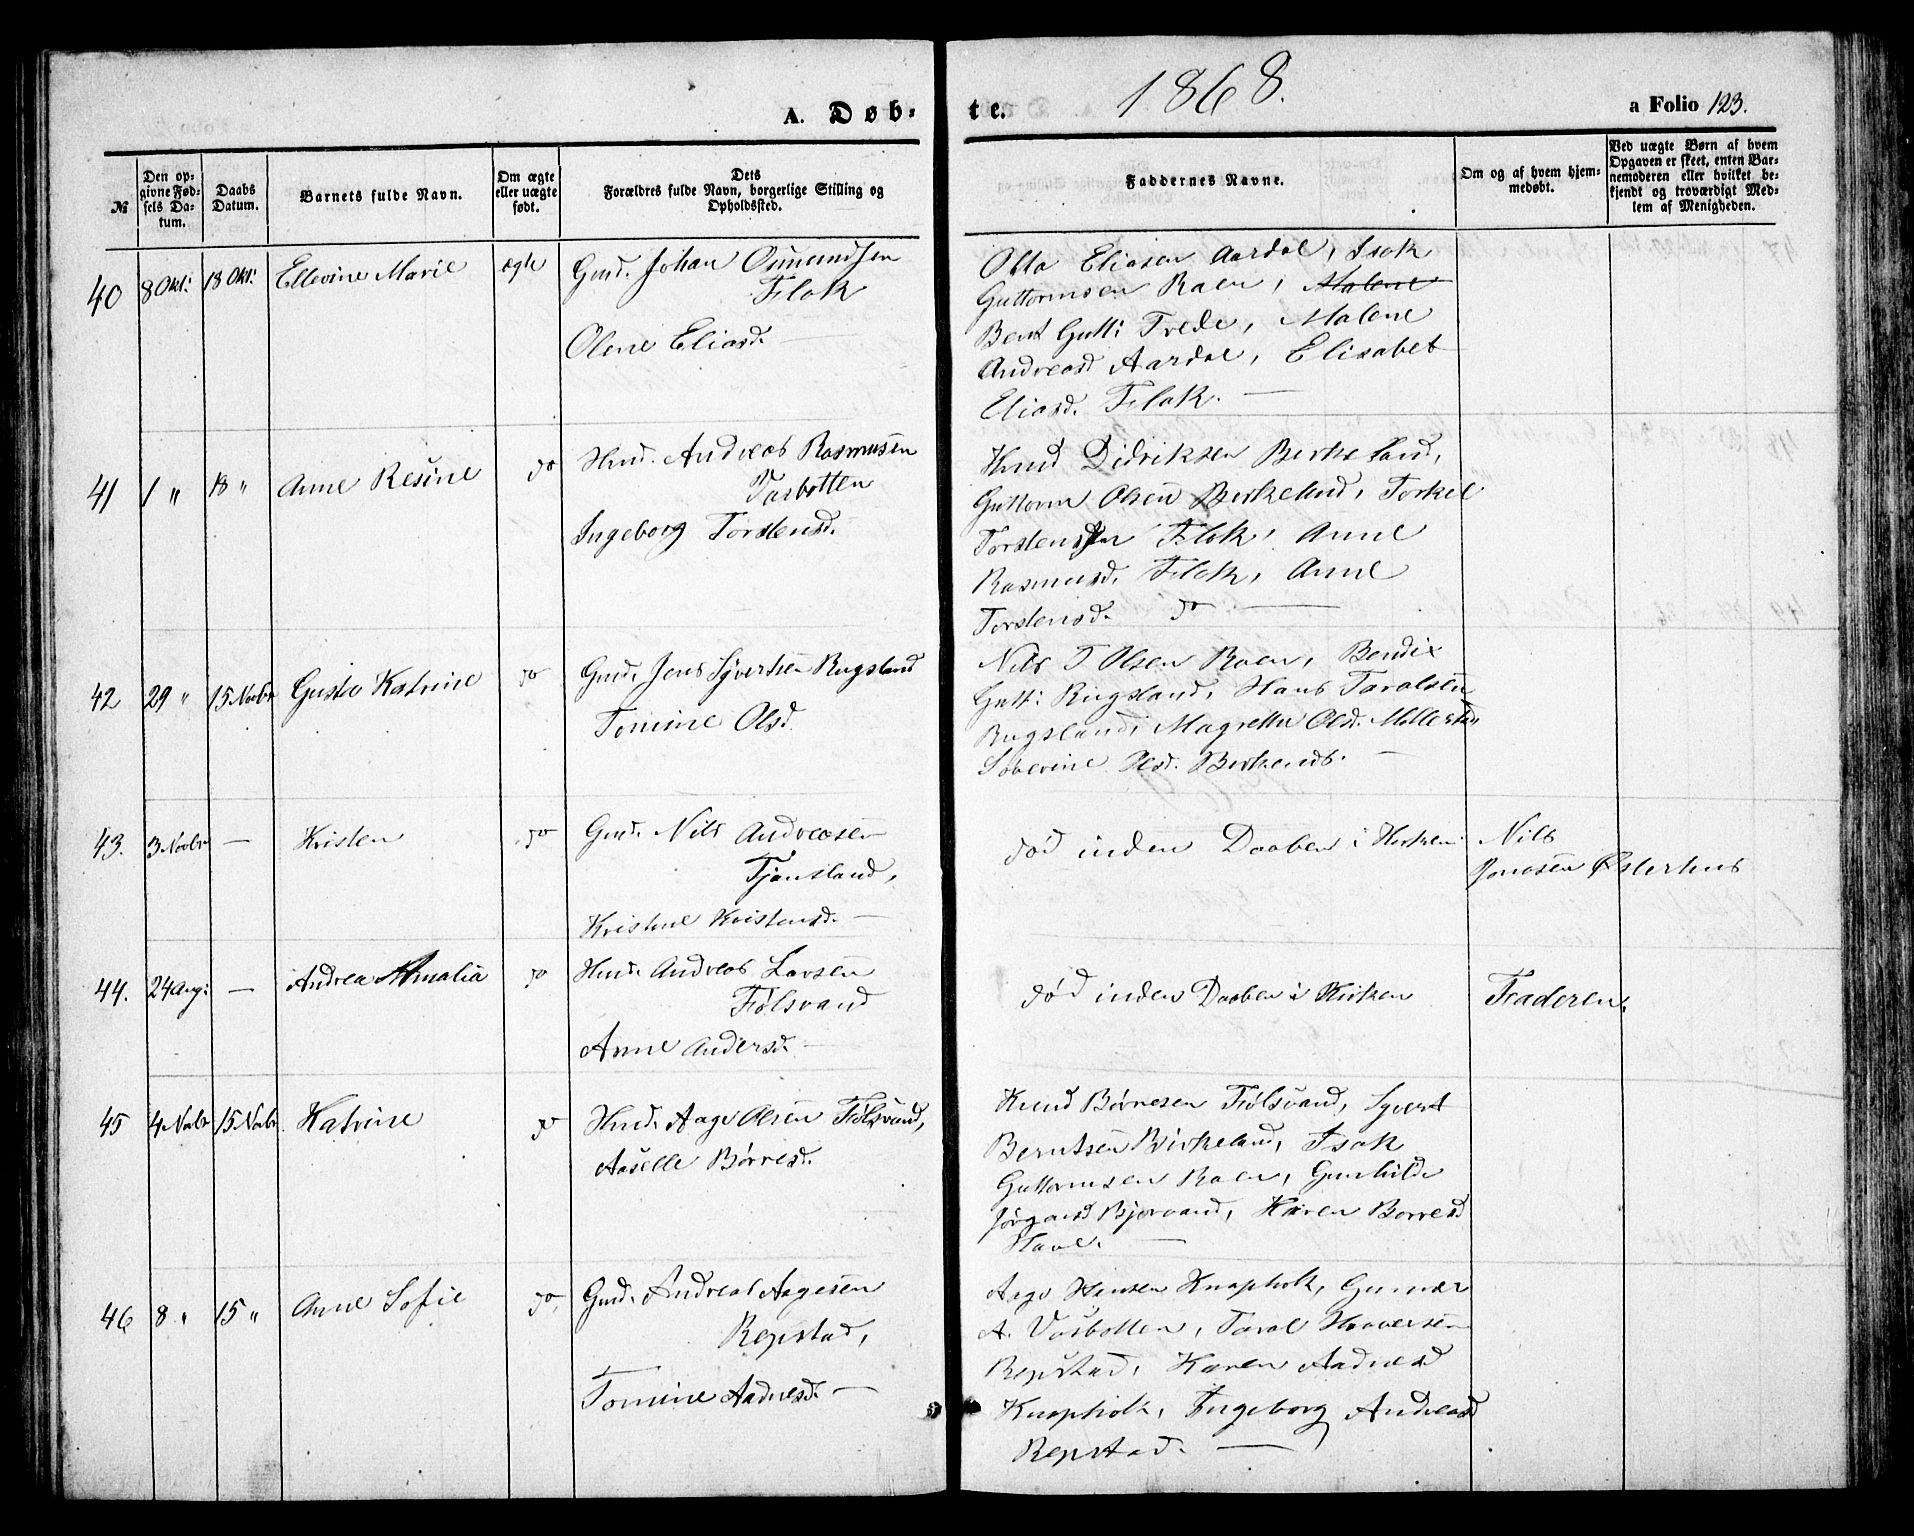 1868.
A. Døb-
te.
a Folio 123.
№
Den op-
givne Fød-
sels Da-
tum.
Daabs
Datum.
Barnets fulde Navn.
Om ægte
eller uægte
født.
Dets
Forældres fulde Navn, borgerlige Stilling og
Opholdssted.
Faddernes Navne.
Om og af hvem hjem-
medøbt.
Ved uægte Børn af hvem
Opgaven er skeet, enten Bar-
nemoderen eller hvilket be-
kjendt og troværdigt Med-
lem af Menigheden.
40 8 Okt: 18 Okt: Ellevine Marie ægte
Gmd. Johan Osmundsen
Flak
Olene Eliasd. —
Otto Eliasen Aardal, Isak
Guttormsen Raen, Malene
Bent Gutt: Trede, Malene
Andreasd Aardal, Elisabet
Eliasd. Flak. —
41 1 " 18 " Anne Resine do
Hmd. Andreas Rasmusen
Vasbotten
Ingeborg Torstensd.
Knud Didriksen Birkeland,
Guttorm Olsen Birkeland, Torkel
Torstensen Flak, Anne
Rasmusd. Flak, Anne
Torstensd. do —
42 29 " 15 Novbr Gusta Katrine do
Gmd. Jens Syvertsen Rugsland
Tomine Olsd.
Nils T Olsen Raen, Bendix
Gutt: Rugsland, Hans Taralsen
Rugsland, Magrethe Olsd.
Severine Olsd. —
43. 3 Novbr — Kristen do
Gmd. Nils Andreasen
Tjomsland,
Kristine Kristensd. —
død inden Daaben i Kirken
Nils
Jonasen Østerhus
44. 24 Aug: — Andrea Amalia do
Hmd. Andreas Larsen
Følsvand
Anne Andersd. —
død inden Daaben i Kirken
Faderen.
45 4 Nvbr 15 Novbr. Katrine do
Hmd. Aage Olsen Følsvand,
Aaselle Børresd.
Knud Børresen Følsvand, Syvert
Berntsen Birkeland, Isak
Guttormsen Raen, Gunhild
Jørgensd Bjorvand, Karen Borresd
—
46 8 " 15 " Anne Sofie do,
Gmd. Andreas Aagesen
Repstad,
Tomine Aadnesd. —
Aage Hansen Knapholt, Gunder
A. Vasbotten, Taral Haaversen
Repstad, Karen Aadnesd
Knapholt, Ingeborg Andreasd
Repstad. —